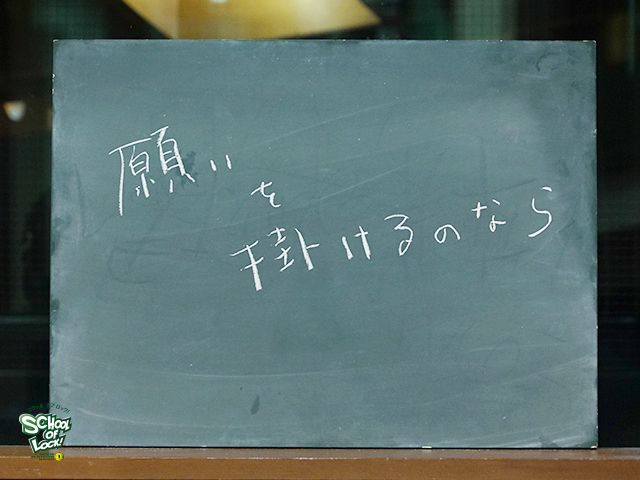 願い
を
掛けるのなら
SCHOOL
OF
LOCK!